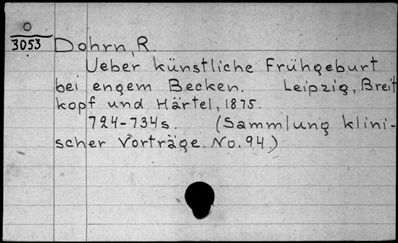 O
3053 Dohrn, R.
Ueber künstliche Frühgeburt
bei engem Becken. Leipzig, Breit
kopf und Härtel, 1875.
724-734s. (Sammlung klini-
scher Vorträge. No. 94.)